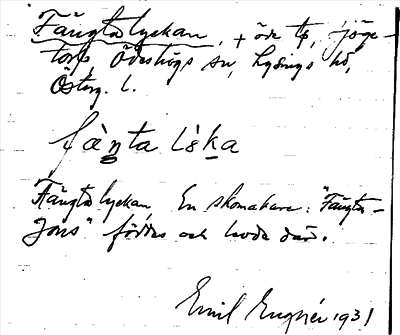 Fängtalyckan, + öde tp, Jöge-
torp Ödeshögs sn, Lysings hd,
Österg. l.
fàŋta lỳka
Fängtalyckan En skomakare: "Fängta-
Jons" föddes och bodde där.
Emil Engnér 1931